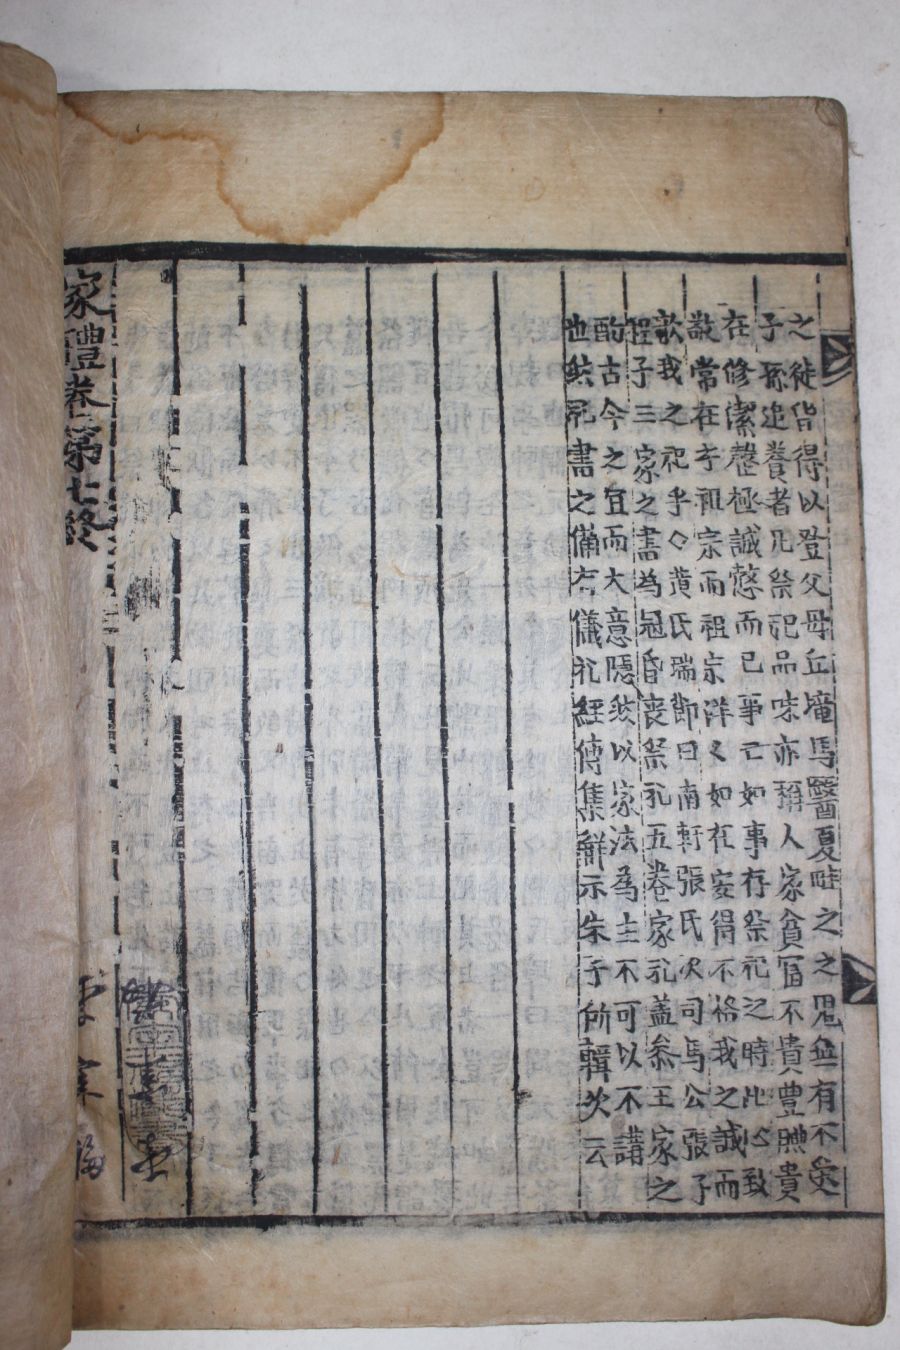 之徒皆得以登父母丘壠馬醫夏畦之之鬼無有不受
子孫追養者凡祭祀品味亦稱人家貧富不貴豊腆貴
在修潔罄極誠慤而已事亡如事存祭祀之時此心致
敬常在乎祖宗而祖宗洋又如在安得不格我之誠而
歆我之祀乎◇黄氏瑞節曰南軒張氏次司馬公張子
程子三家之書為冠昏喪祭礼五卷家礼盖叅王家之
酌古今之宜而大意隠然以家法為主不可以不講
也然礼書之備有儀礼經傳集觧示朱子所輯次云
家禮卷第七終